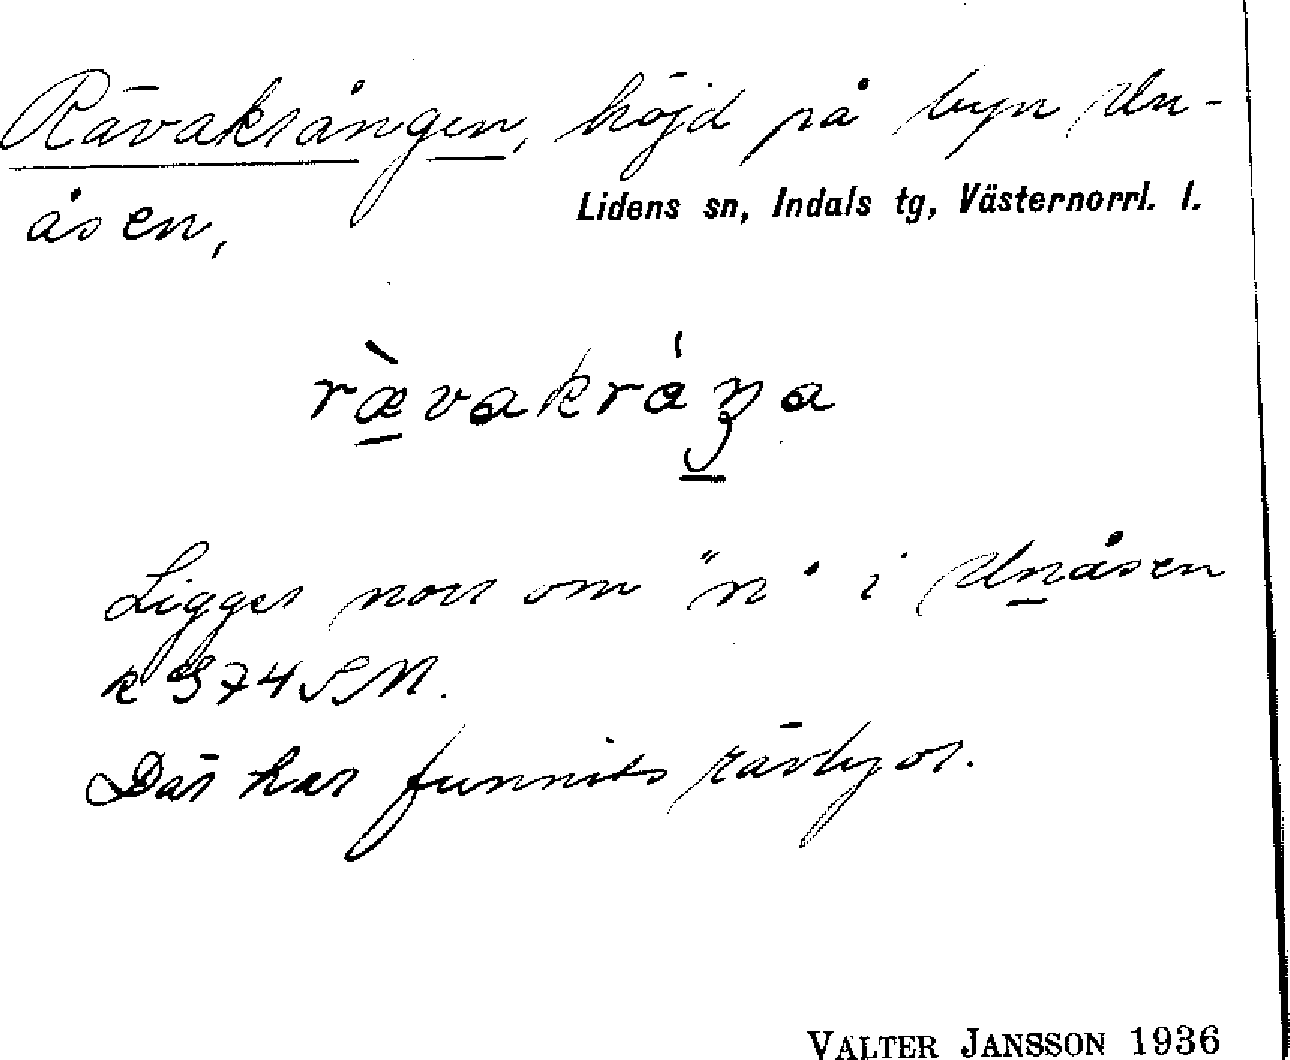 Rävakrången, höjd på byn Un-
åsen,
Lidens sn, Indals tg, Västernorrl. l.
ræ̀vakráŋa
Ligger norr om "n" i Unåsen
k 374 SN.
Där har funnits rävlyor.
VALTER JANSSON 1936